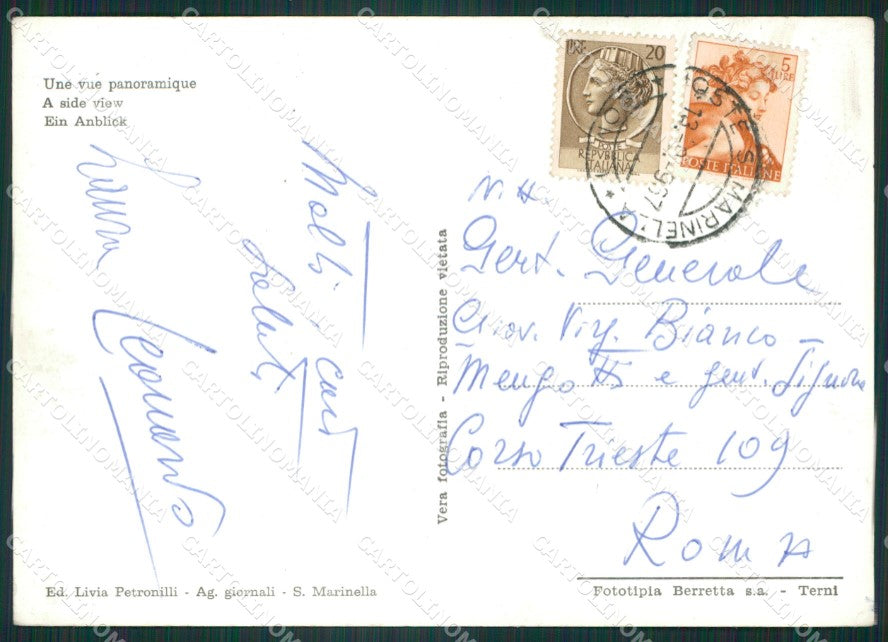 Une vue panoramique
A side view
Ein Anblick
Molti cari
saluti
Leonardo
Vera fotografia - Riproduzione vietata
LIRE 20
REPVBBLICA
ITALIANA
5
LIRE
POSTE ITALIANE
POSTE S. MARINELLA
Gent. Generale
Giov. Virg. Bianco -
Mengotti e gent. Signora
Corso Trieste 109
Roma
Ed. Livia Petronilli - Ag. giornali - S. Marinella
Fototipia Berretta s.a. - Terni
CARTOLINOMANIA